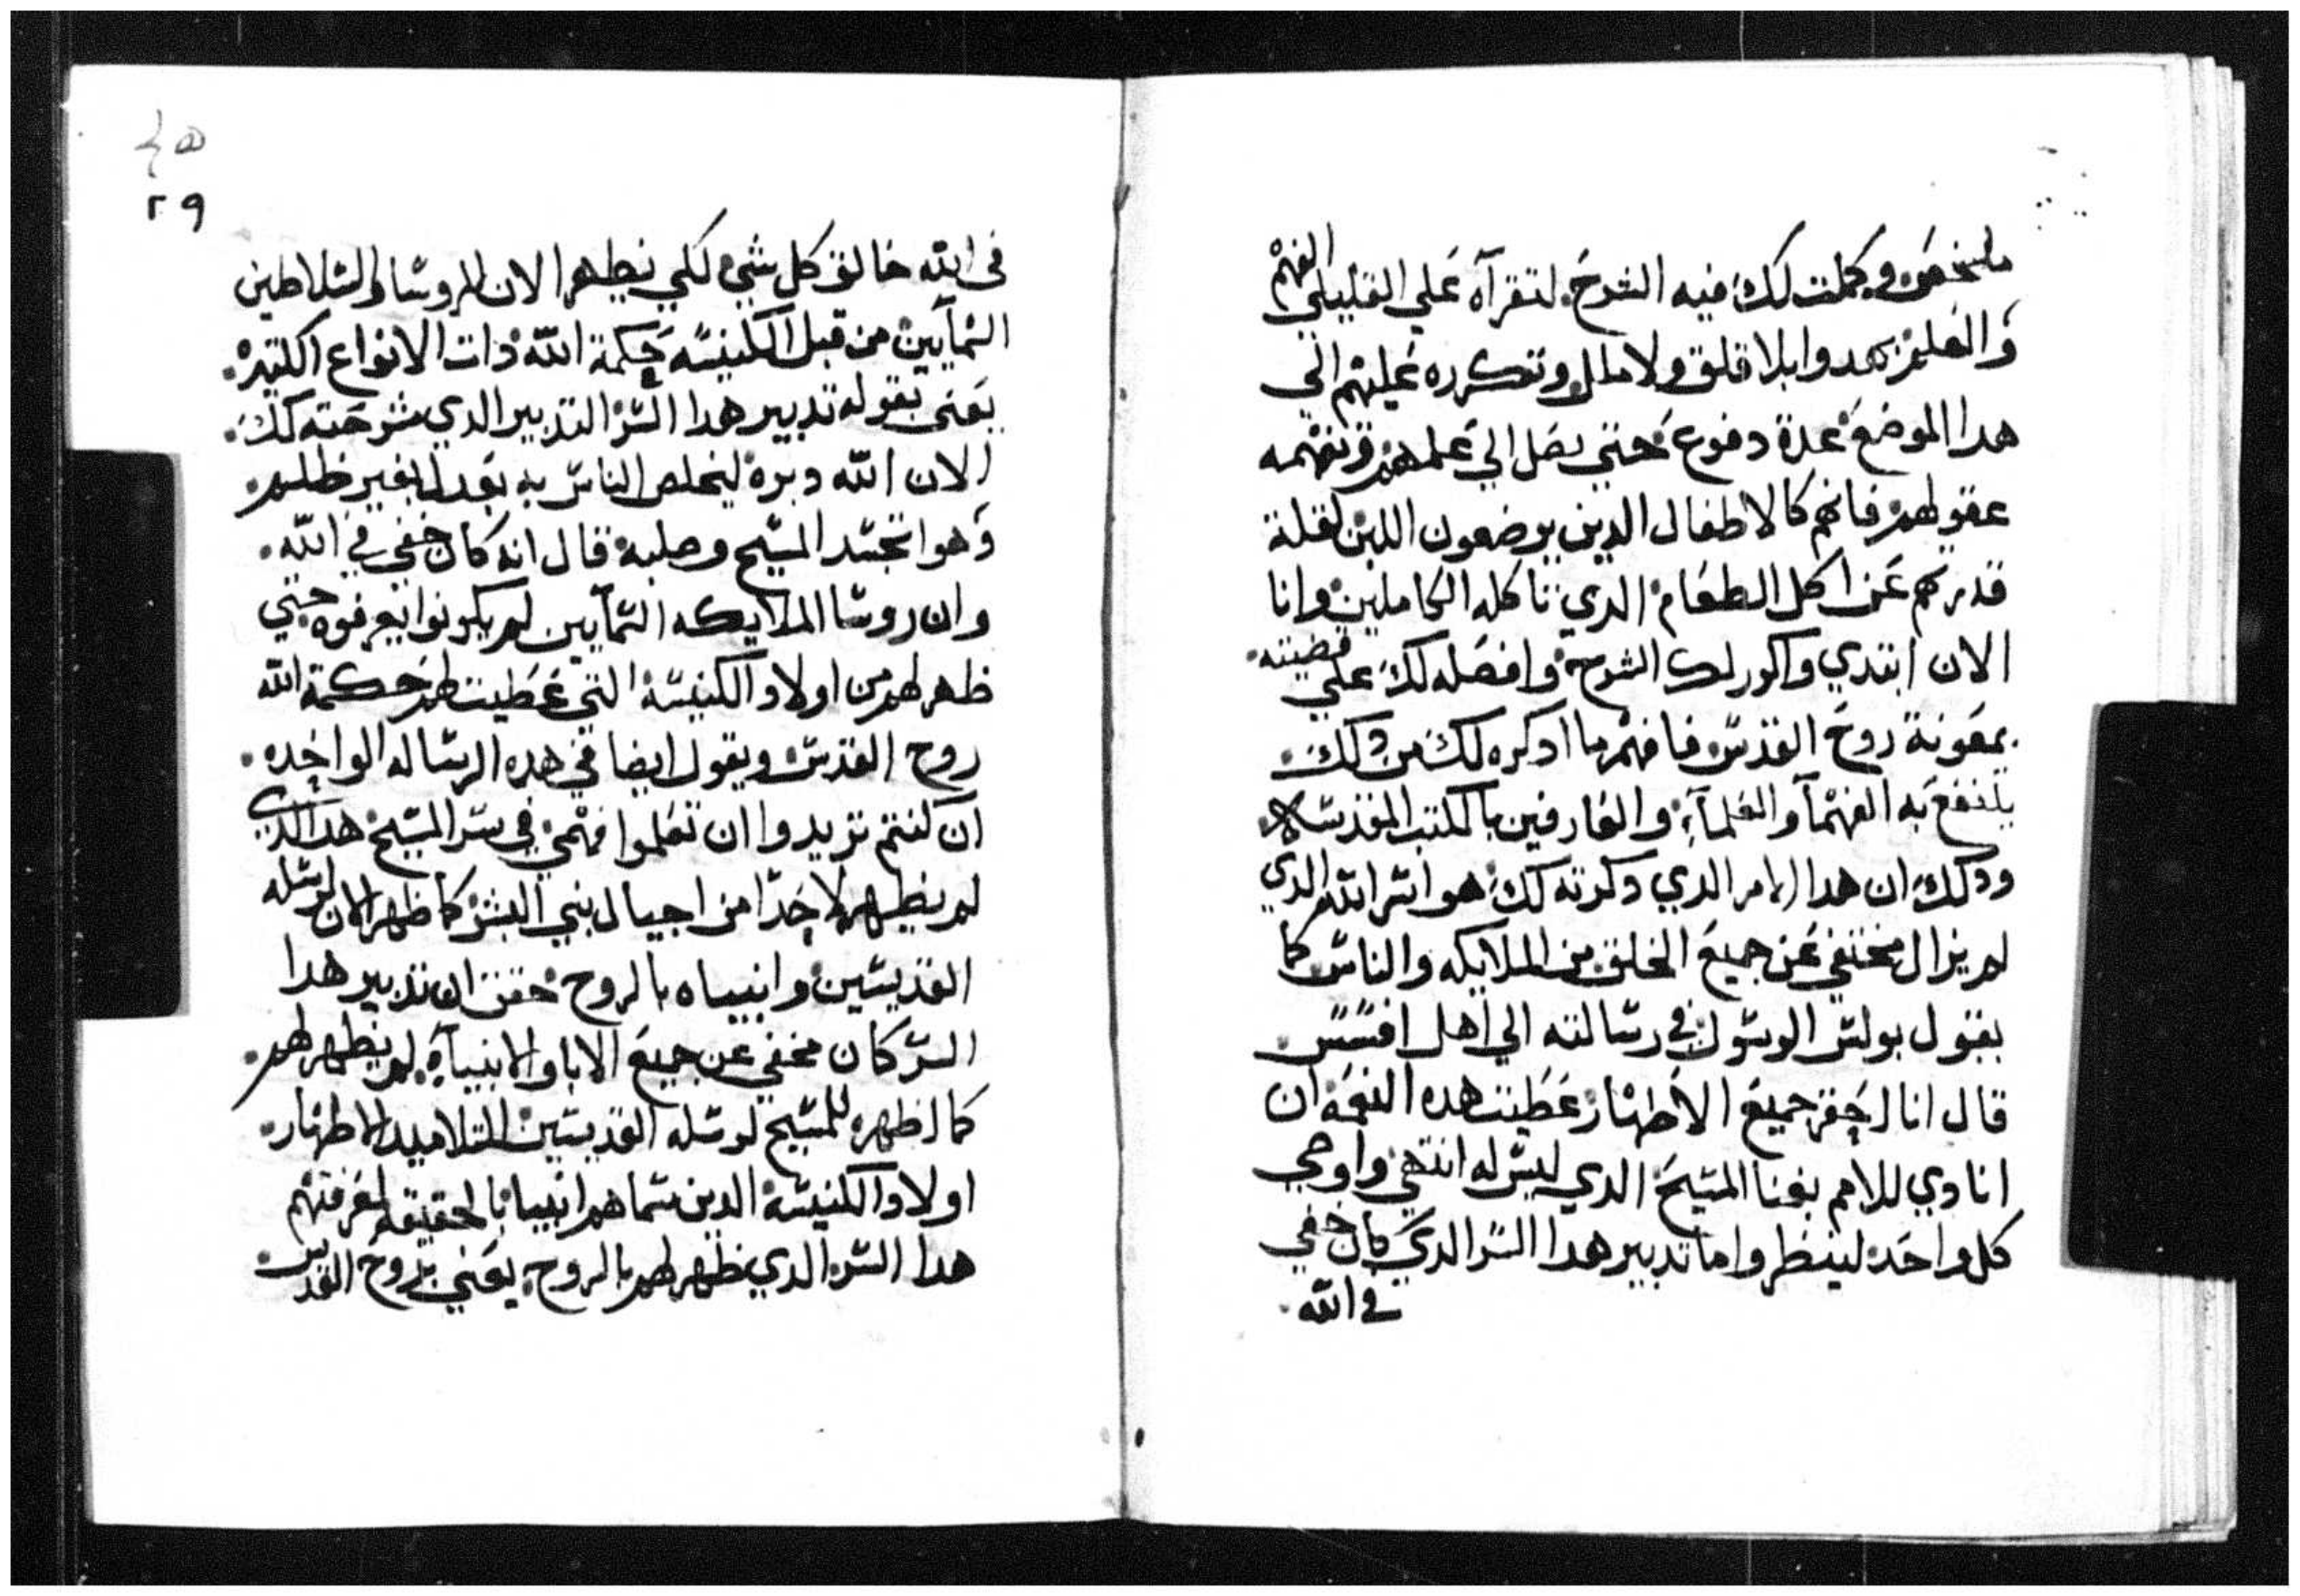 ملخصه وكملت لك فيه الشرح. لتقرآه علي القليلي الفهم
والعلم بهدوا بلا قلق ولا ملل وتكرره عليهم الي
هدا الموضع عدة دفوع حتي يصل الي علمهم وتفهمه
عقولهم فانهم كالاطفال الدين يرضعون اللبن لقلة
قدرتهم عن اكل الطعام الدي تاكله الكاملين وانا
الان ابتدي واكور لك الشرح وافصله لك علي قضيته.
بمعونة روح القدس فافهم ما ادكره لك من دلك.
يلنفع به الفهمآ والعلمآء والعارفين بالكتب المقدسه
ودلك ان هدا الامر الدي دكرته لك هو اسر الله الدي
لم يزال مختفي عن جميع الخلق من الملايكه والناس كما
يقول بولس الرسول في رسالته الي اهل افسس.
قال انا احقر جميع الاطهار عطيت هده النعمه ان
انادي للامم بغنا المسيح الدي ليس له انتهي واوحي
كل واحد لينظروا ما تدبير هدا السر الدي كان خفي
في الله.
٤٥
٢٩
في الله خالق كل شي لكي يظهر الان للروسا والسلاطين
السمآيين من قبل الكنيسه حكمة الله دات الانواع الكتيره.
يعني بقوله تدبير هدا السر التدبير الدي شرحته لك.
الان الله دبره ليخلص الناس به بعدل بغير ظلم.
وهوا تجسد المسيح وصلبه قال انه كان خفي في الله.
وان روسا الملايكه السمآيين لم يكونوا يعرفوه حتي
ظهر لهم من اولاد الكنيسه التي عطيت لهم حكمة الله
روح القدس ويقول ايضا في هده الرساله الواحده.
ان كنتم تريدوا ان تعلموا فهمي في سر المسيح هدا الدي
لم يظهر لاحدا من اجيال بني البشر كما ظهر الان لرسله
القديسين وانبياه بالروح حقق ان تدبير هدا
السر كان مخفي عن جميع الابا والانبيآء لم يظهر لهم.
كما اظهره المسيح لرسله القديسين التلاميد الاطهار.
اولاد الكنيسه الدين سماهم انبيا بالحقيقه لمعرفتهم
هدا السر الدي ظهر لهم بالروح. يعني بروح القدس.